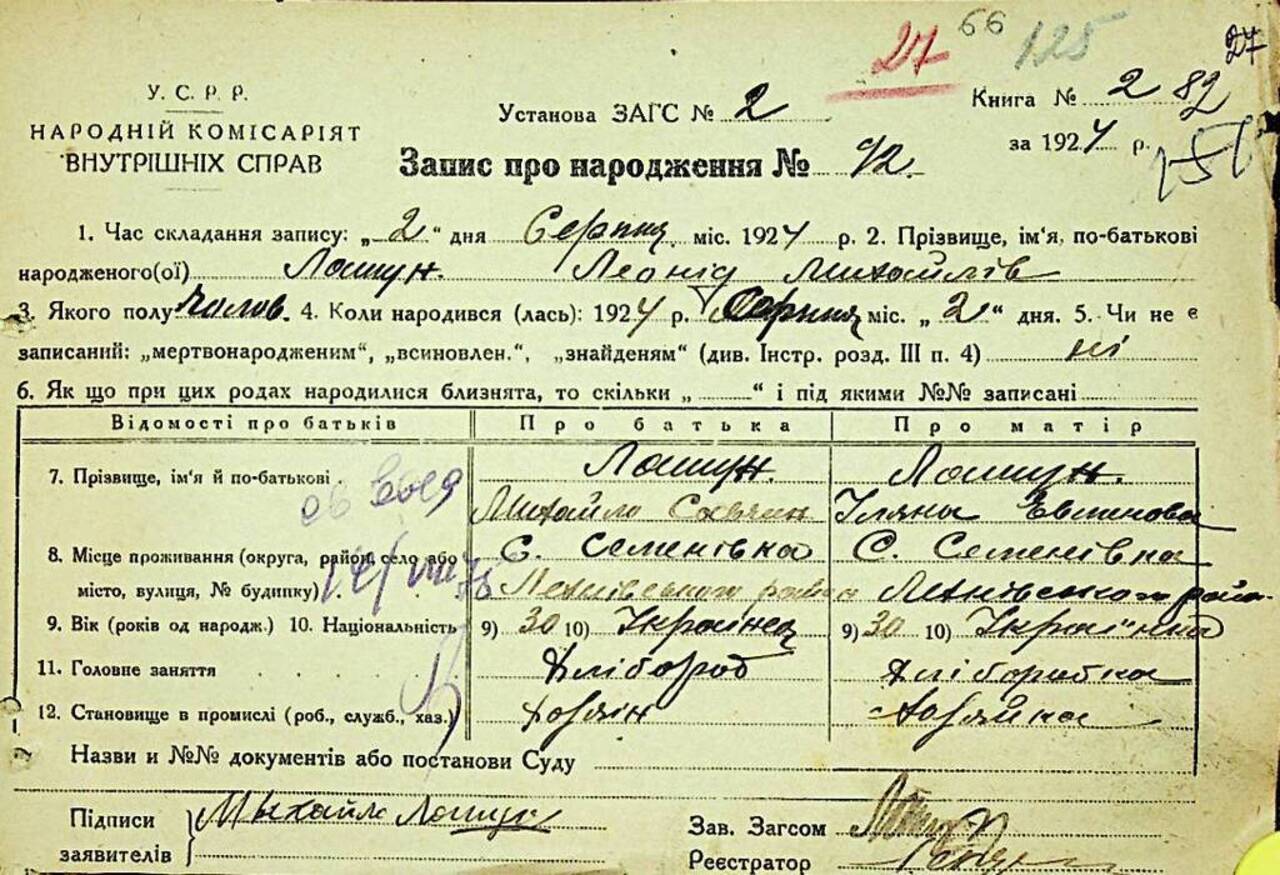 27 66 125 27
У. С. Р. Р.
НАРОДНІЙ КОМІСАРІЯТ
ВНУТРІШНІХ СПРАВ
Установа ЗАГС № 2
Книга № 2 82
за 1924 р.
Запис про народження № 92
1. Час складання запису: „2“ дня Серпня міс. 1924 р. 2. Прізвище, ім'я, по-батькові
народженого(ої) Леонід Михайлів
3. Якого полу Чолов. 4. Коли народився (лась): 1924 р. Серпня міс. „2“ дня. 5. Чи не є
записаний: „мертвонародженим“, „всиновлен.“, „знайденям“ (див. Інстр. розд. III п. 4) ні
6. Як що при цих родах народилися близнята, то скільки „ “ і під якими №№ записані
Відомості про батьків Про батька Про матір
7. Прізвище, ім'я й по-батькові .
Михайло Уляна
8. Місце проживання (округа, район, село або С. Семенівка С. Семенівка
місто, вулиця, № будинку) . . району
9. Вік (років од народж.) 10. Національність 9) 30 10) Українец 9) 30 10) Українка
11. Головне заняття . . . . . Хлібороб Хліборобка
12. Становище в промислі (роб., служб., хаз.) Хозяін Хозяйка
Назви и №№ документів або постанови Суду
Підписи Мыхайло
заявителів
Зав. Загсом
Реєстратор